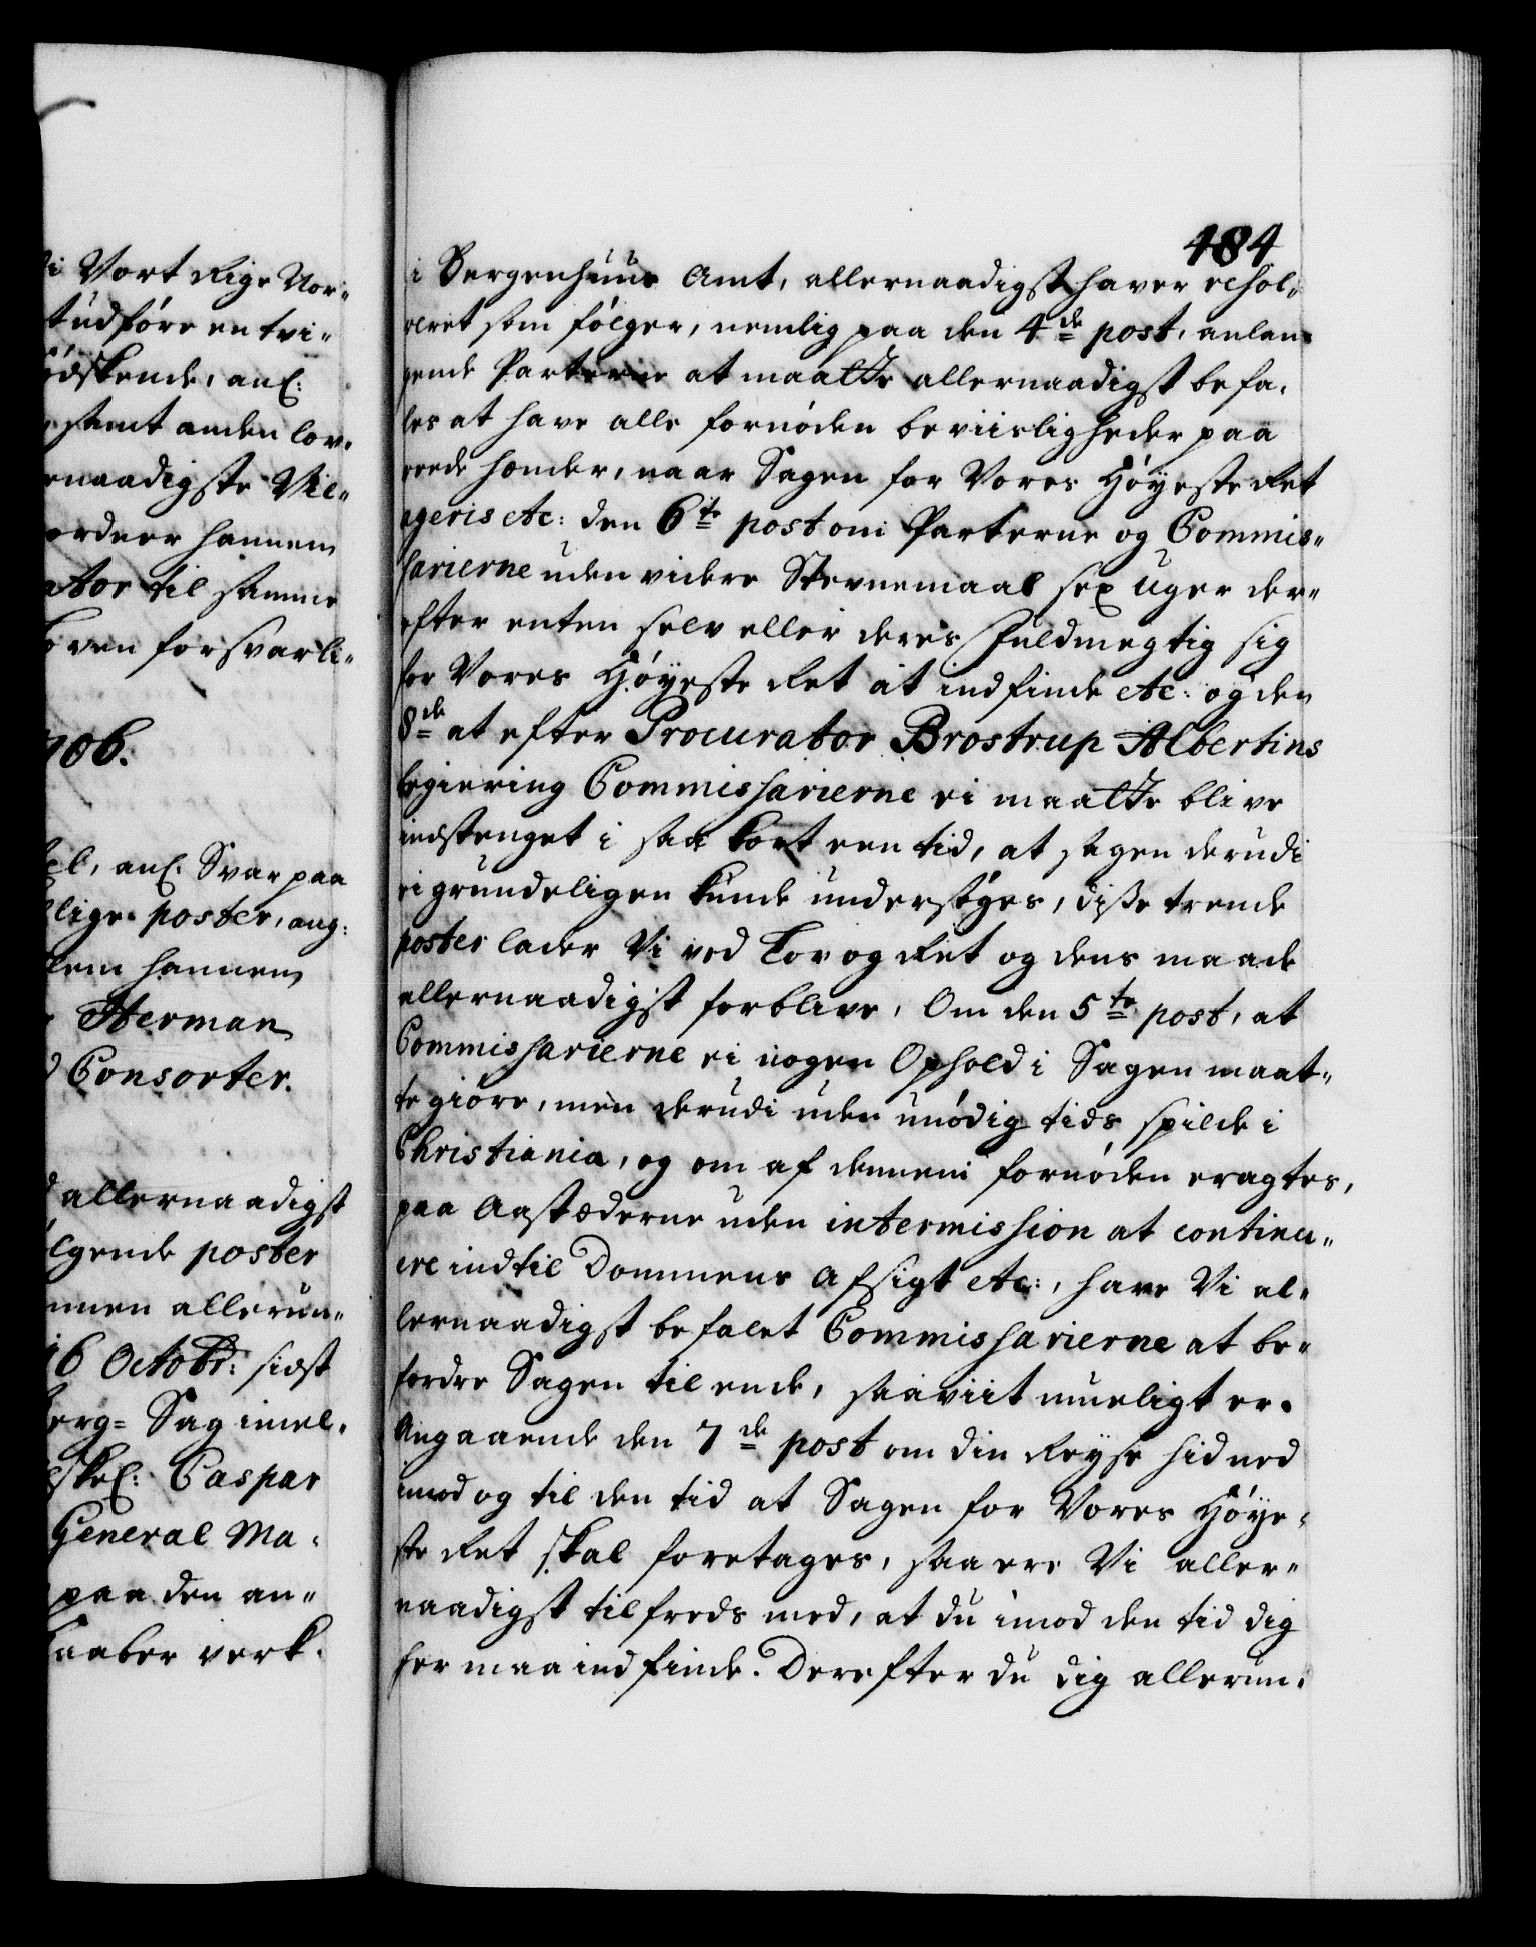 i Vort Rige Nor-
udføre en tvi-
ødskende, anl:
samt anden lov-
rnaadigste Vil-
ordner hannem
ator til samme
oven forsvarli-
706.
el, anl: Svar paa
lige poster, ang:
lem hannem
Herman
Consorter.
allernaadigst
lgende poster
nnen allerun-
16 Octobr: sidst
berg- Sag imel-
skel: Caspar
General Ma-
paa den an-
Kaaber verk.
484
i Bergenhuus Amt, allernaadigst haver resol-
veret som følger, nemlig paa den 4de post, anlan-
gende Parterne at maatte allernaadigst befa-
les at have alle fornøden beviisligheder paa
rede hænder, naar Sagen for Vores Høyeste Ret
ageris etc: den 6te post om Parterne og Commis-
sarierne uden videre Stevnemaal sex Uger der-
efter enten selv eller deres Fuldmegtig sig
for Vores Høyeste Ret at indfinde etc: og den
8de at efter Procurator Brostrup Albertins
begiering Commissarierne ei maatte blive
indstenget i saa kort een tid, at sagen derudi
ei grundeligen kunde undersøges, disse trende
poster lader Vi ved Lov og Ret og dens maade
allernaadigst forblive, Om den 5te post, at
Commissarierne ei nogen Ophold i Sagen maat-
te giøre, men derudi uden unødig tids spilde i
Christiania, og om af dennem fornøden eragtes,
paa Aastæderne uden intermission at continu-
ere indtil Dommens Afsigt etc:, have Vi al-
lernaadigst befalet Commissarierne at be-
fordre Sagen til ende, saaviit mueligt er.
Angaaende den 7de post om din Reyse hid ned
imod og til den tid at Sagen for Vores Høye-
ste Ret skal foretages, saa ere Vi aller-
naadigst tilfreds med, at du imod den tid dig
her maa indfinde. Derefter du dig allerun-